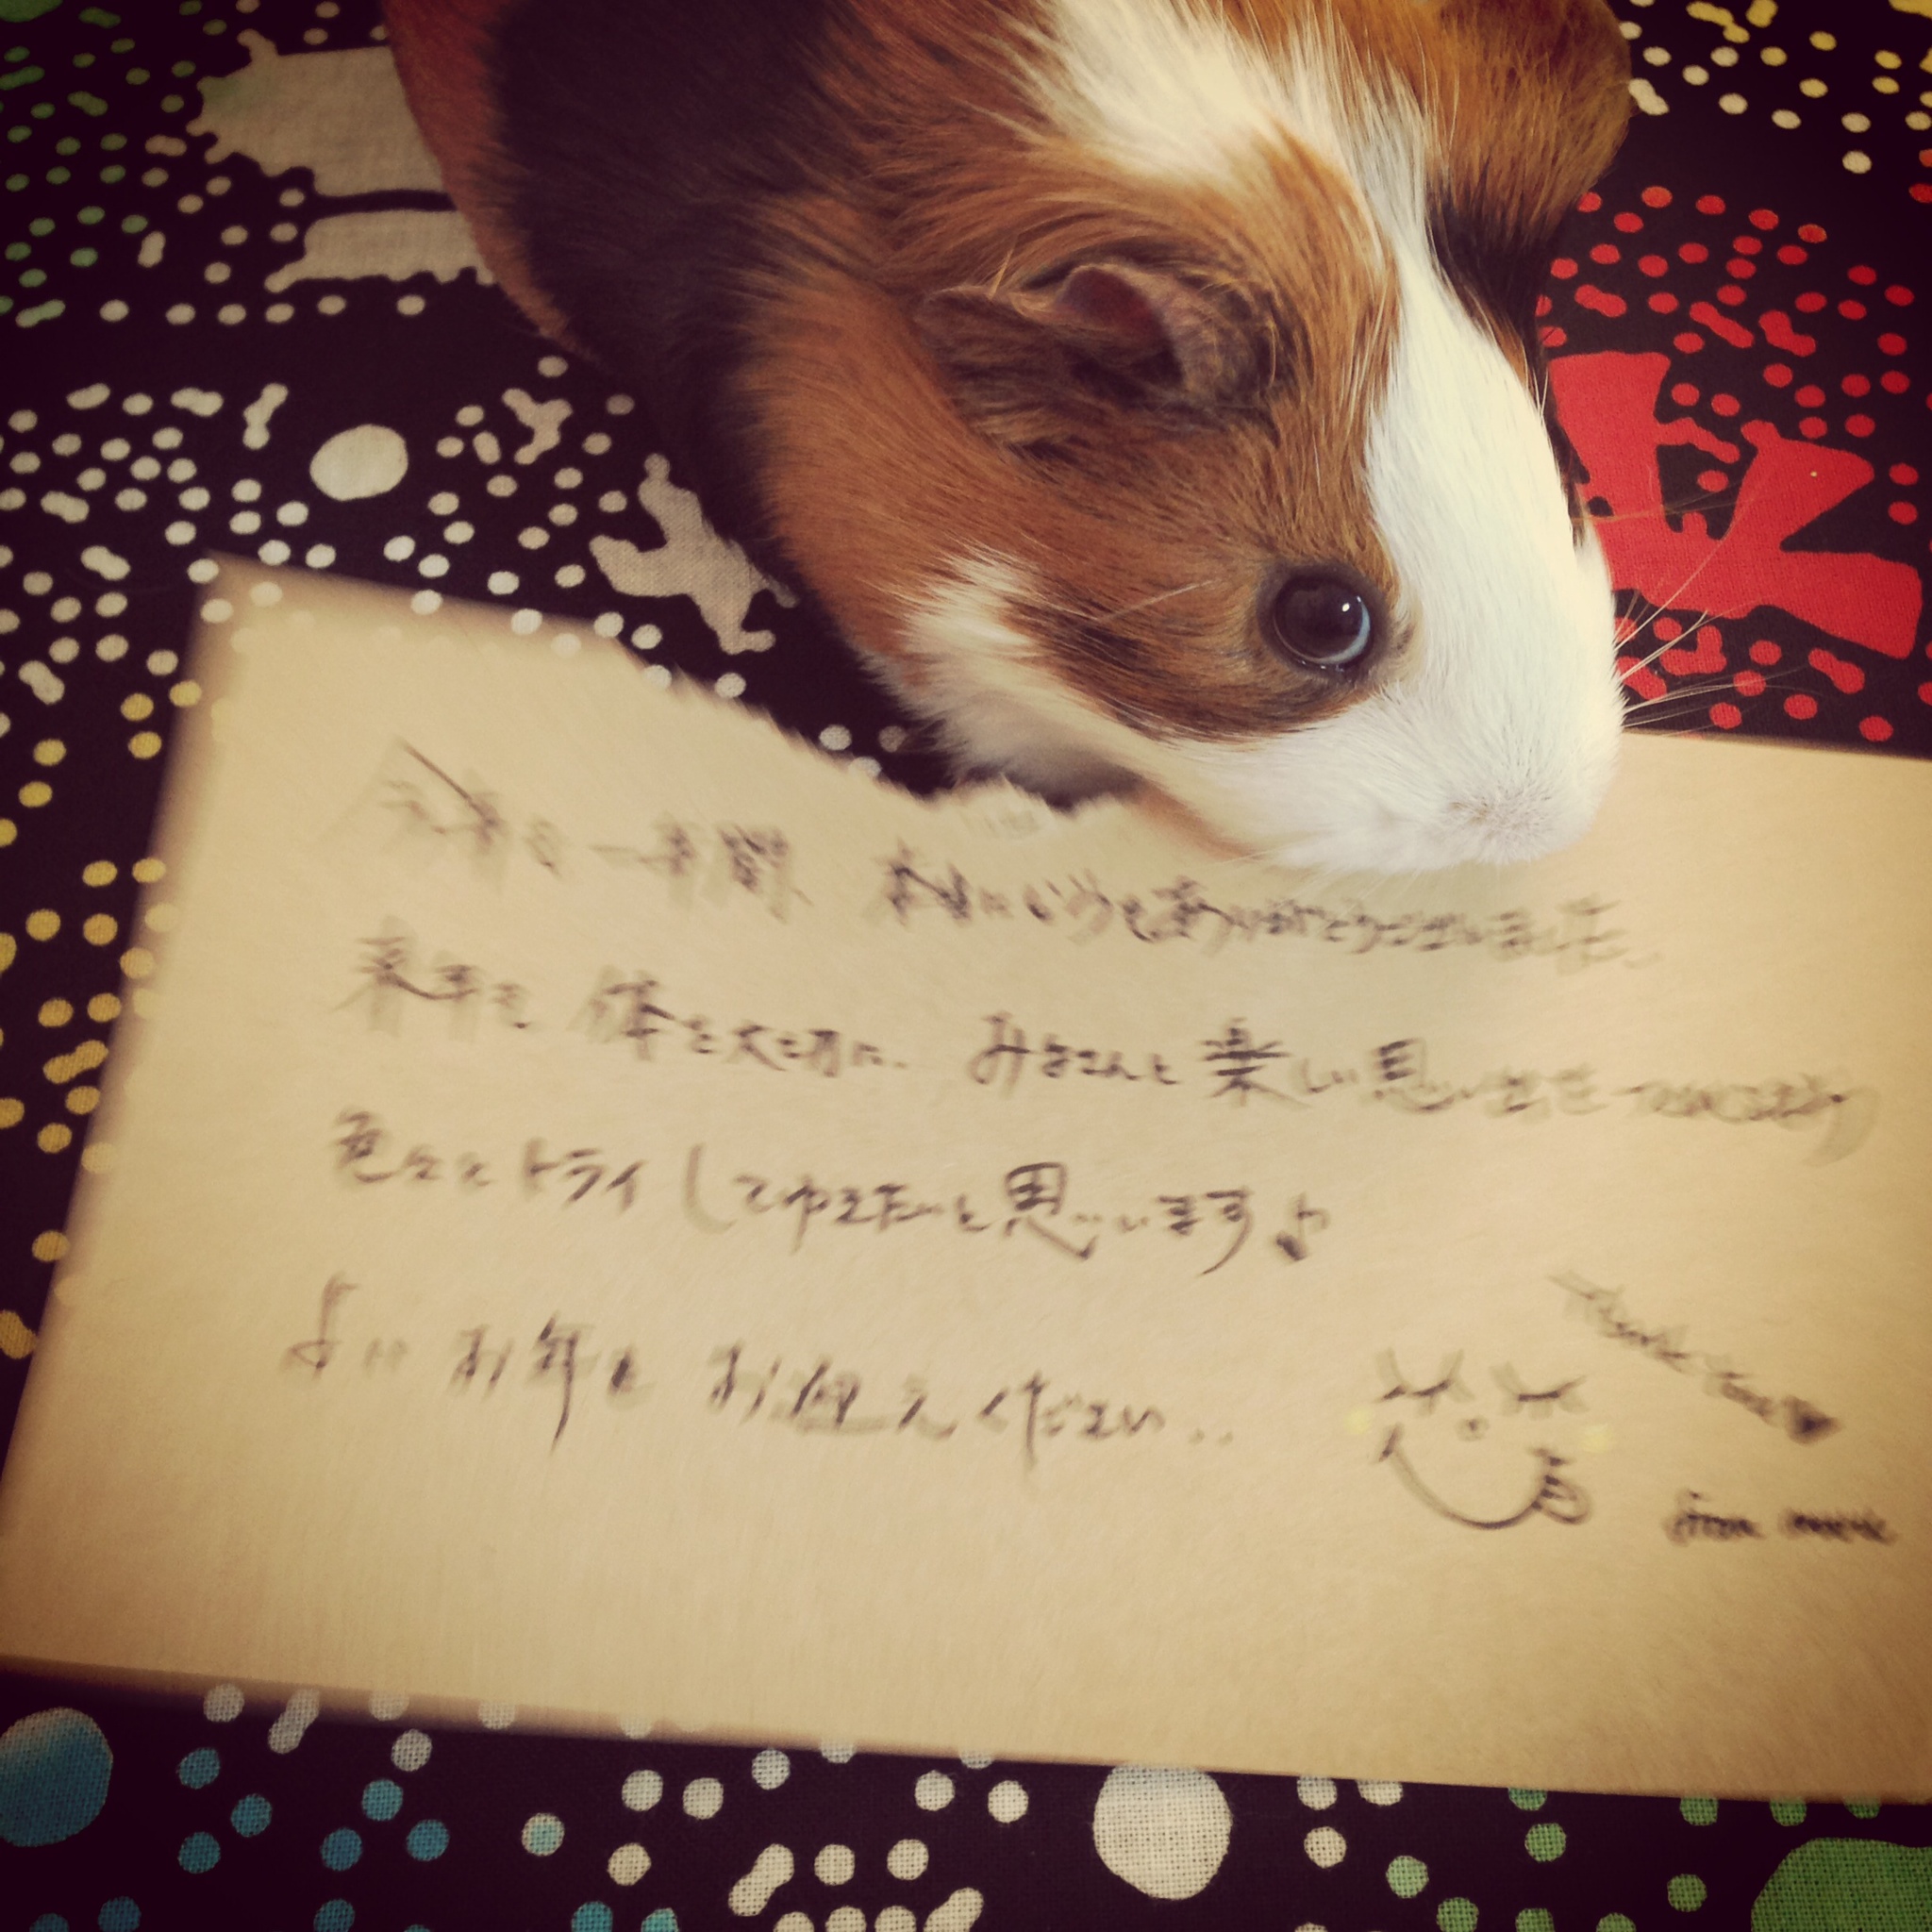 今年も一年間、本当にどうもありがとうございました。
来年も 体を大切に、みなさんと楽しい思い出をつくれるよう
色々とトライしてゆきたいと思っています♪
よい お年を お迎えください..
Thank you♥
from